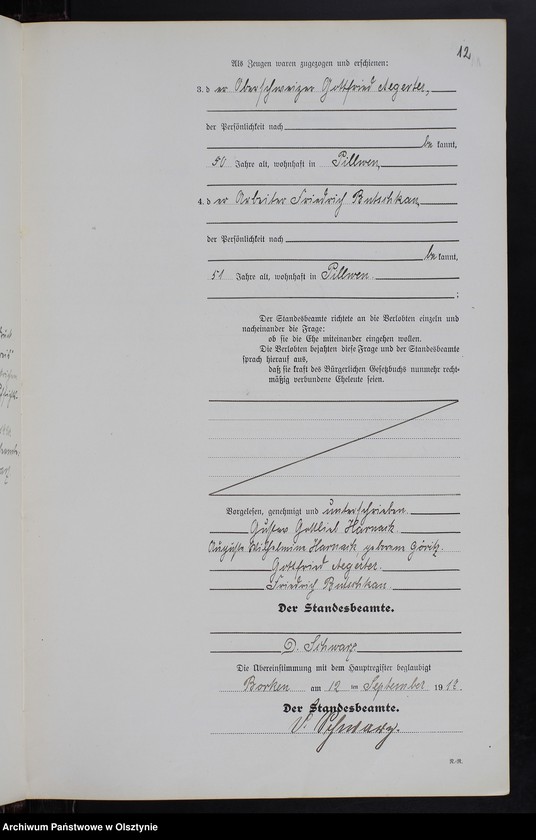 12
Als Zeugen waren zugezogen und erschienen:
3. der Oberschweizer Gottfried Aegerter,
der Persönlichkeit nach
bekannt,
50 Jahre alt, wohnhaft in Pillwen,
4. der Arbeiter Friedrich Butschkau,
der Persönlichkeit nach
bekannt,
51 Jahre alt, wohnhaft in Pillwen
;
Der Standesbeamte richtete an die Verlobten einzeln und
nacheinander die Frage:
ob sie die Ehe miteinander eingehen wollen.
Die Verlobten bejahten diese Frage und der Standesbeamte
sprach hierauf aus,
daß sie kraft des Bürgerlichen Gesetzbuchs nunmehr recht-
mäßig verbundene Eheleute seien.
Vorgelesen, genehmigt und unterschrieben.
Gustav Gottlieb Harnack.
Auguste Wilhelmine Harnack geborene Göritz.
Gottfried Aegerter.
Friedrich Butschkau.
Der Standesbeamte.
D. Schwarz
Die Übereinstimmung mit dem Hauptregister beglaubigt
Borken am 12 ten September 1912.
Der Standesbeamte.
Schwarz.
R.-R.
Archiwum Państwowe w Olsztynie